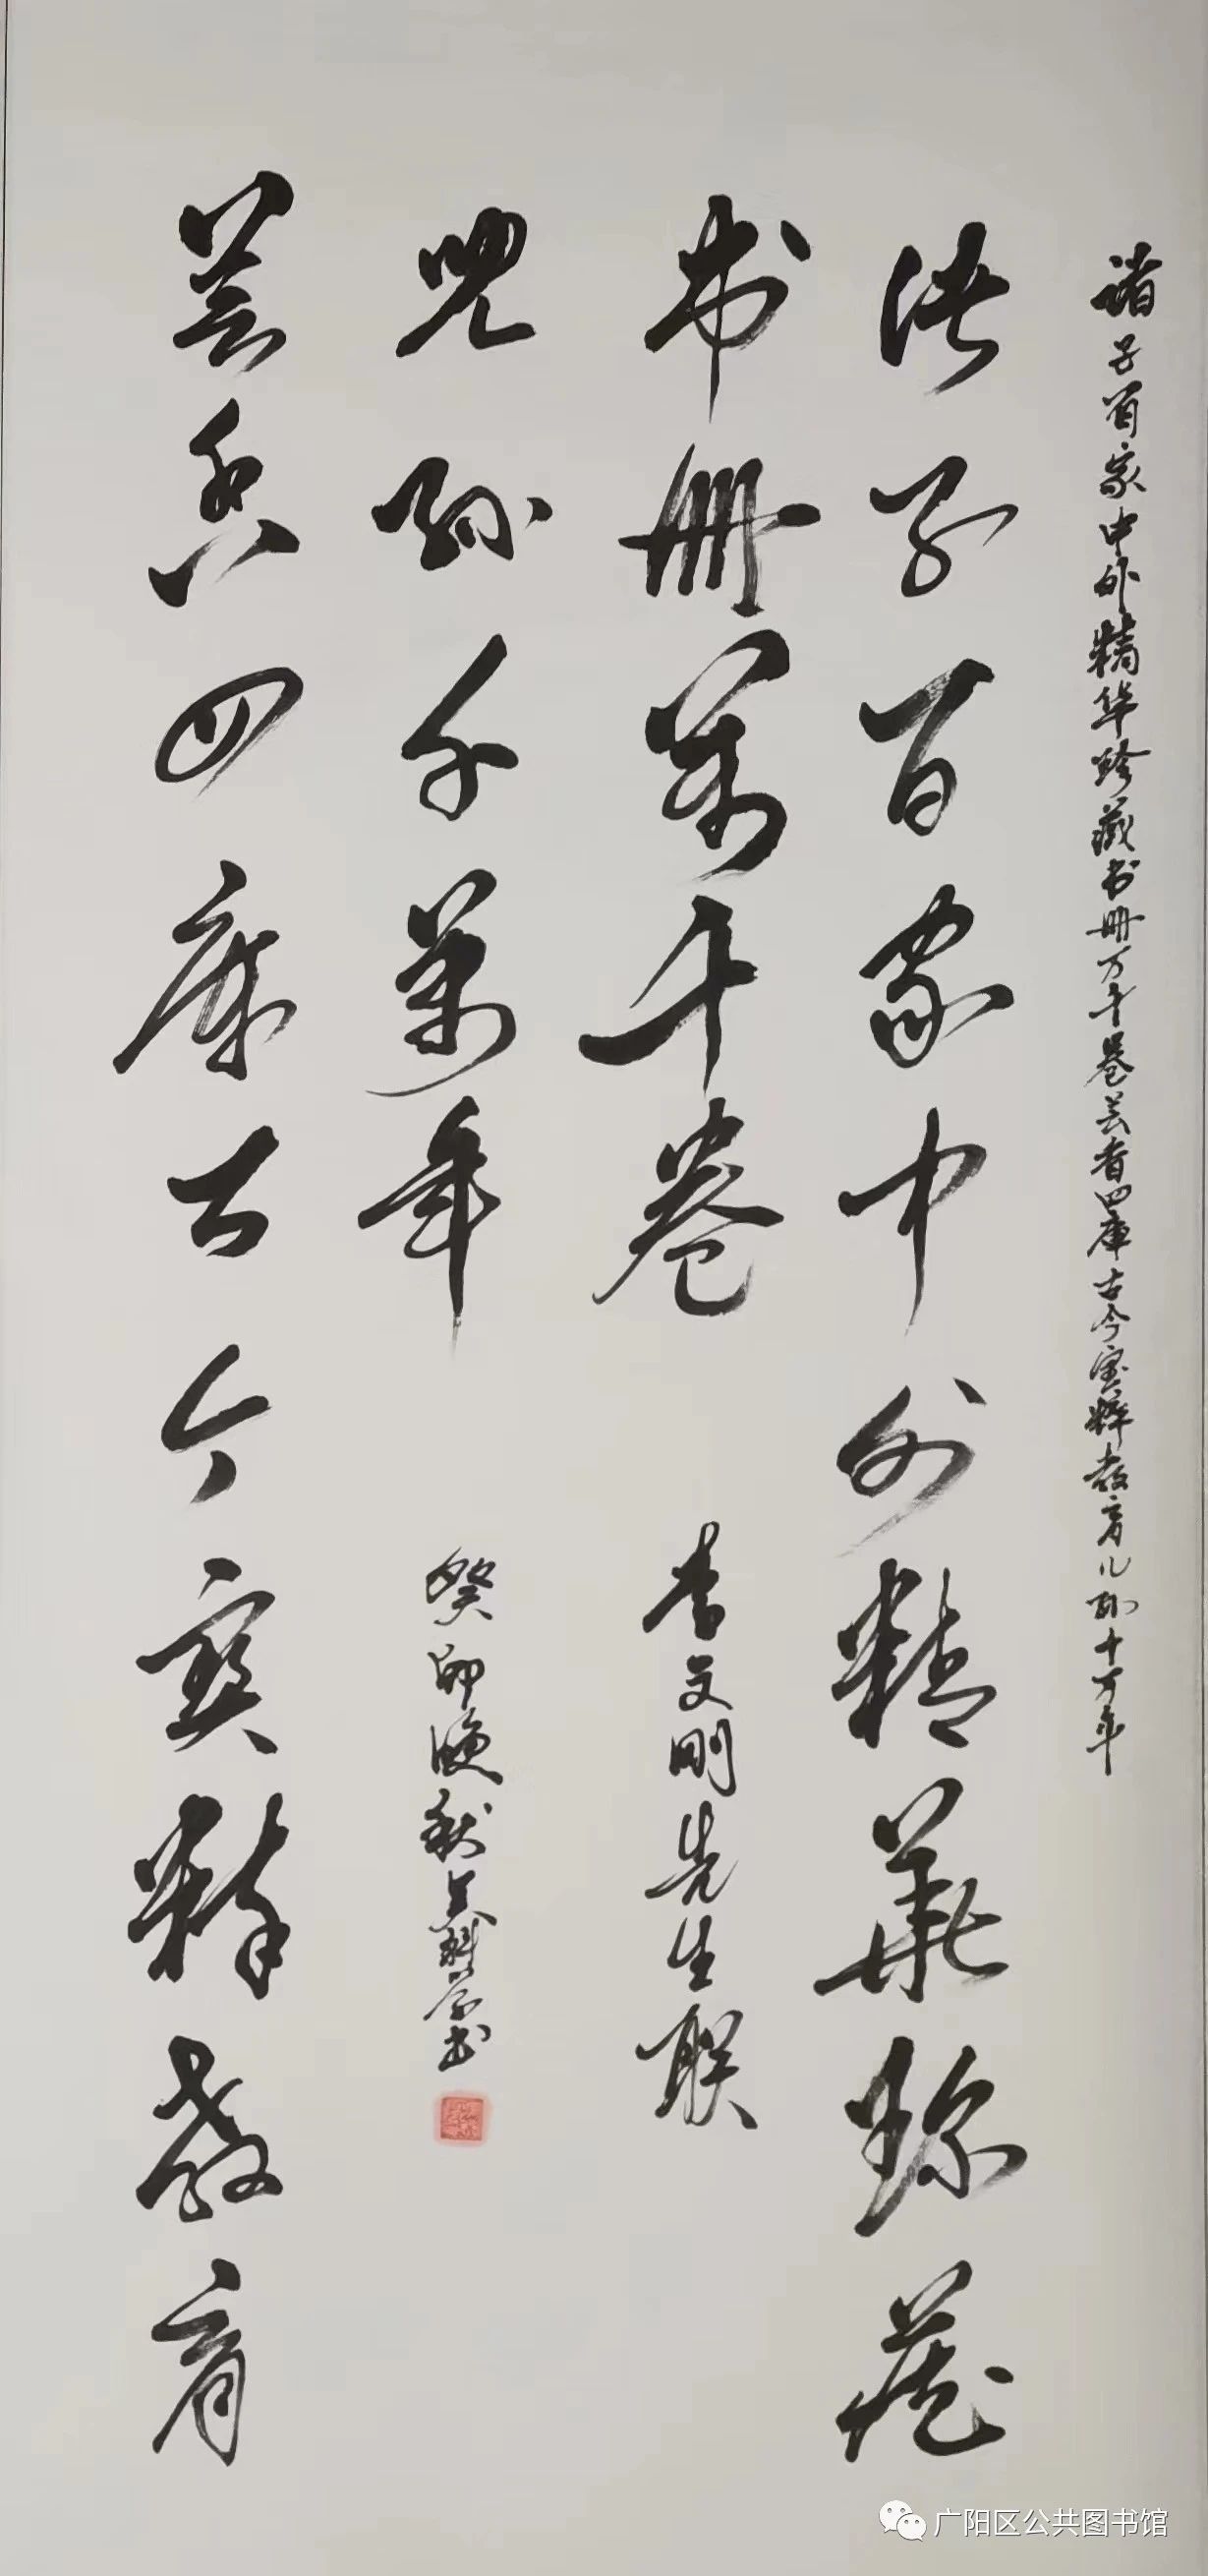 诸子百家中外精华珍藏书册万千卷芸香四庫古今宝粹教育儿孙千万年
诸子百家中外精華珍藏
书册萬千卷
李文明先生联
芸香四庫古今寶粹教育
兒孙千萬年
癸卯晚秋书
广阳区公共图书馆